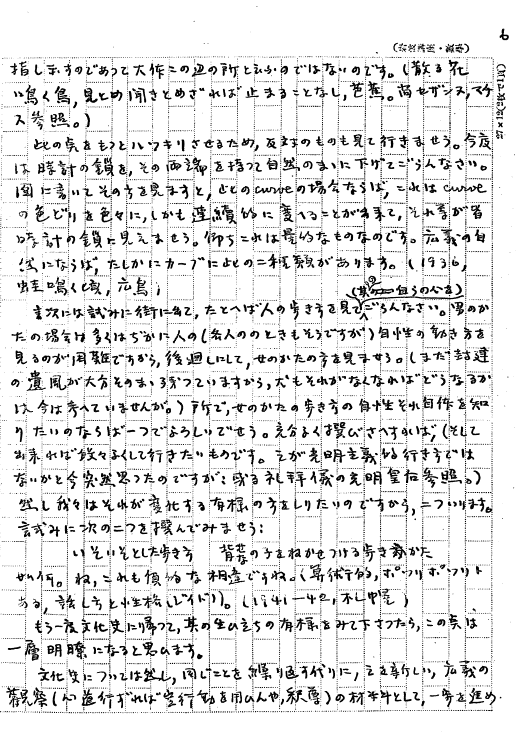 6
指しますのであつて大体この辺の所と云ふのではないのです。(散る花
鳴く鳥,見とめ聞きとめざれば止まることなし,芭蕉。尚セザンヌ,マチ
ス参照。)
此の点をもつとハツキリさせるため,反対のものも見て行きませう。今度
は時計の鎖を,その両端を持つて自然のまゝに下げてごらんなさい。
図に書いてその方を見ますと,此のcurveの場合ならば,これはcurve
の色どりを色々に,しかも連續的に変へることが出来て,それ等が皆
時計の鎖に見えませう。即ちこれは量的なものなのです。広義の自
然にならば,たしかにカーブに此の二種類があります。(1936,
蛙鳴く頃,広島)
次には試みに街に出て,たとへば人の歩き方を見てごらんなさい。男のか
たの場合は多くはぢかに人の(名人ののときもそうですが)自性の動き方を
見るのが困難ですから,後廻しにして,女のかたの方を見ませう。(まだ封建
の遺風が大分そのまゝ残つていますから,尤もそれがなくなればどうなるか
は今は考へていませんが。)所で,女のかたの歩き方の自性それ自体を知
りたいのならば一つでよろしいでせう。充分よく撰びさへすれば,(そして
出来れば段々よくして行きたいものです。之が光明主義的行き方では
ないかと今突然思つたのですが,或る礼拝儀の光明皇后参照。)
然し我々はそれが変化する有様の方をしりたいのですから,二ついります。
試みに次の二つを撰んでみませう:
いそいそとした歩き方　背中の子をねかせつける歩き方
如何。ね,これも質的な相違ですね。
ある,話し方と性格(レイド))。(1941—42,札幌)
もう一度文化史に帰つて,其の生ひ立ちの有様をみて下さつたら,この点は
一層明瞭になると思ひます。
文化史については然し,同じことを繰り返す代りに,之を新しい,広義の
観察の材料として,一歩を進め